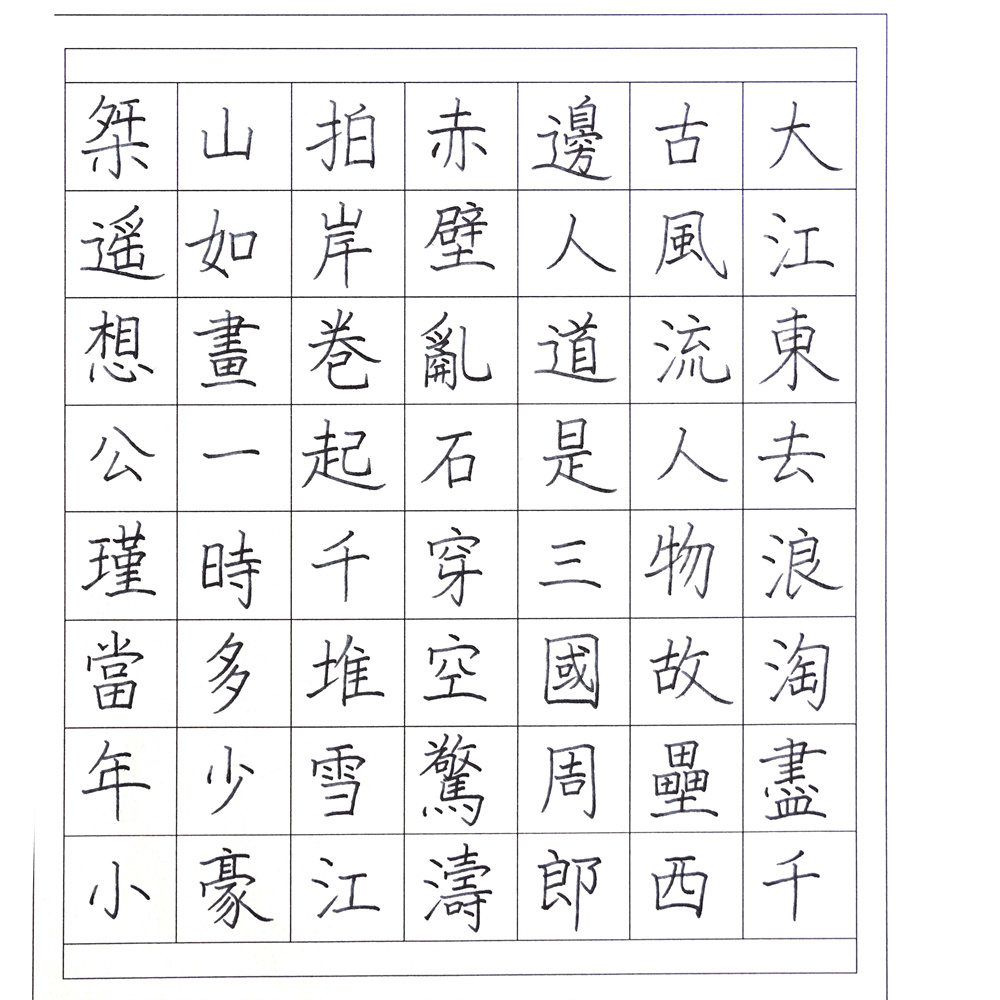 大江東去浪淘盡千
古風流人物故壘西
邊人道是三國周郎
赤壁亂石穿空驚濤
拍岸巻起千堆雪江
山如畫一時多少豪
桀遥想公瑾當年小